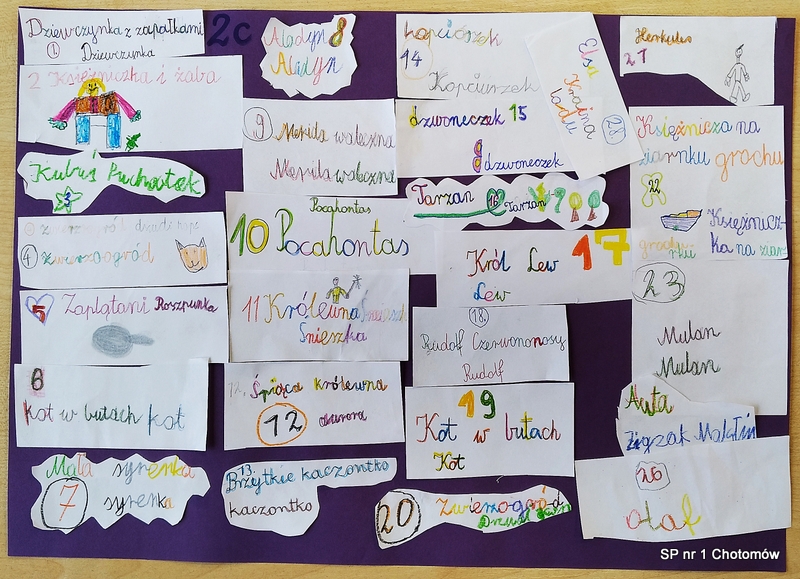 Dziewczynka z zapałkami
1
Dziewczynka
2c
2 Księżniczka i żaba
Kubuś Puchatek
3
4 zwierzoogród
5
Zaplątani Roszpunka
6
kot w butach kot
Mała syrenka
7 syrenka
Aladyn 8
Aladyn
9 Merida waleczna
Merida waleczna
Pocahontas
10 Pocahontas
11 Królewna Śnieżka
Śnieżka
12. Śpiąca królewna
12 aurora
13.
Brzytkie kaczontko
kaczontko
Kopciószek
14
Kopciuszek
dzwoneczek 15
dzwoneczek
Tarzan 16 Tarzan
Król Lew 17
Lew
18.
Rudolf Czerwononosy
Rudolf
19
Kot w butach
Kot
20 Zwierzogród
Elsa
Kraina
lodu
28
Herkules
21
Księżnicza na
ziarnku grochu
22
Księżnicz-
ka na ziar
grochu
23
Mulan
Mulan
Auta
Zigzak Makłin
26
Olaf
SP nr 1 Chotomów